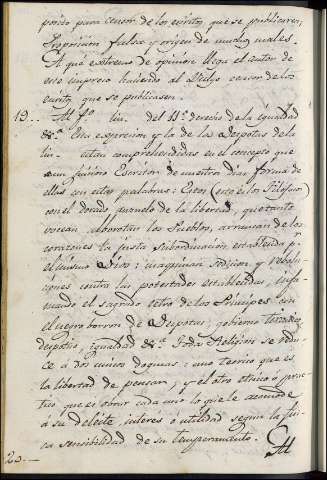 para censor de los escritos que se publicaren;
Proposicion falsa y origen de muchos males.
A qué extremo de opinion llega el autor de
este impreso haciendo al Pueblo censor de los
escritos que se publicasen.
19... Al fº lin. del 11.º derecho de la igualdad
&.ª Esta expresion y la de los Despotas de la
lin. estan comprehendidas en el concepto que
un juicioso Escritor de nuestros dias forma de
ellas con estas palabras: Estos (esto es los Filosofos)
con el dorado anzuelo de la libertad, que tanto
vocean, alborotan los Pueblos, arrancan de los
corazones la justa subordinacion establecida p.
el mismo Dios: maquinan sedicion y rebeliones
contra las potestades establecidas, infamando
el sagrado cetro de los Principes con
el negro borron de Despotas, gobierno tirano,
despotico, igualdad &.ª Toda Religion se reduce
à dos unicos dogmas: uno teorico que es
la libertad de pensar; y el otro etnico ó practico
que es obrar cada uno lo que le acomode
á su deleite, interés ó utilidad segun la fisica
sensibilidad de su temperamento.
20.... Al